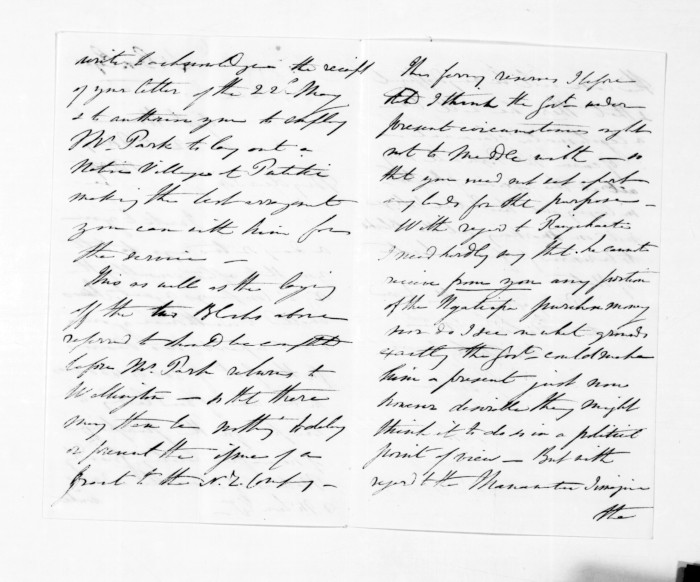 write to acknowledge the receipt
of your letter of the 22d May
& to authorise you to employ
Mr. Park to lay out a
Native Village at Putiki
making the best arrangemt
you can with him for
the service —
This as well as the laying
off the two Blocks above
referred to should be completed
before Mr. Park returns to
Wellington — so that there
may then be nothing to delay
or prevent the issue of a
Grant to the N. Z. Compy —
The ferry reserves I before
I think the Govt. under
present circumstances ought
not to meddle with — so
that you need not set apart
any lands for that purpose —
With regard to Rangihaeata
I need hardly say that he cannot
receive from you any portion
of the Ngatiapa purchase money
nor do I see on what grounds
exactly the Govt. could make
him a present just now
however desirable they might
think it to do so in a political
point of view — But with
regard to the Manawatu I imagine
the